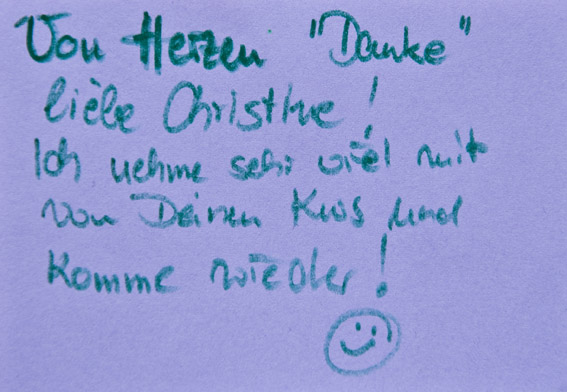 Von Herzen "Danke"
liebe Christine!
Ich nehme sehr viel mit
von Deinen Kurs und
Komme wieder!